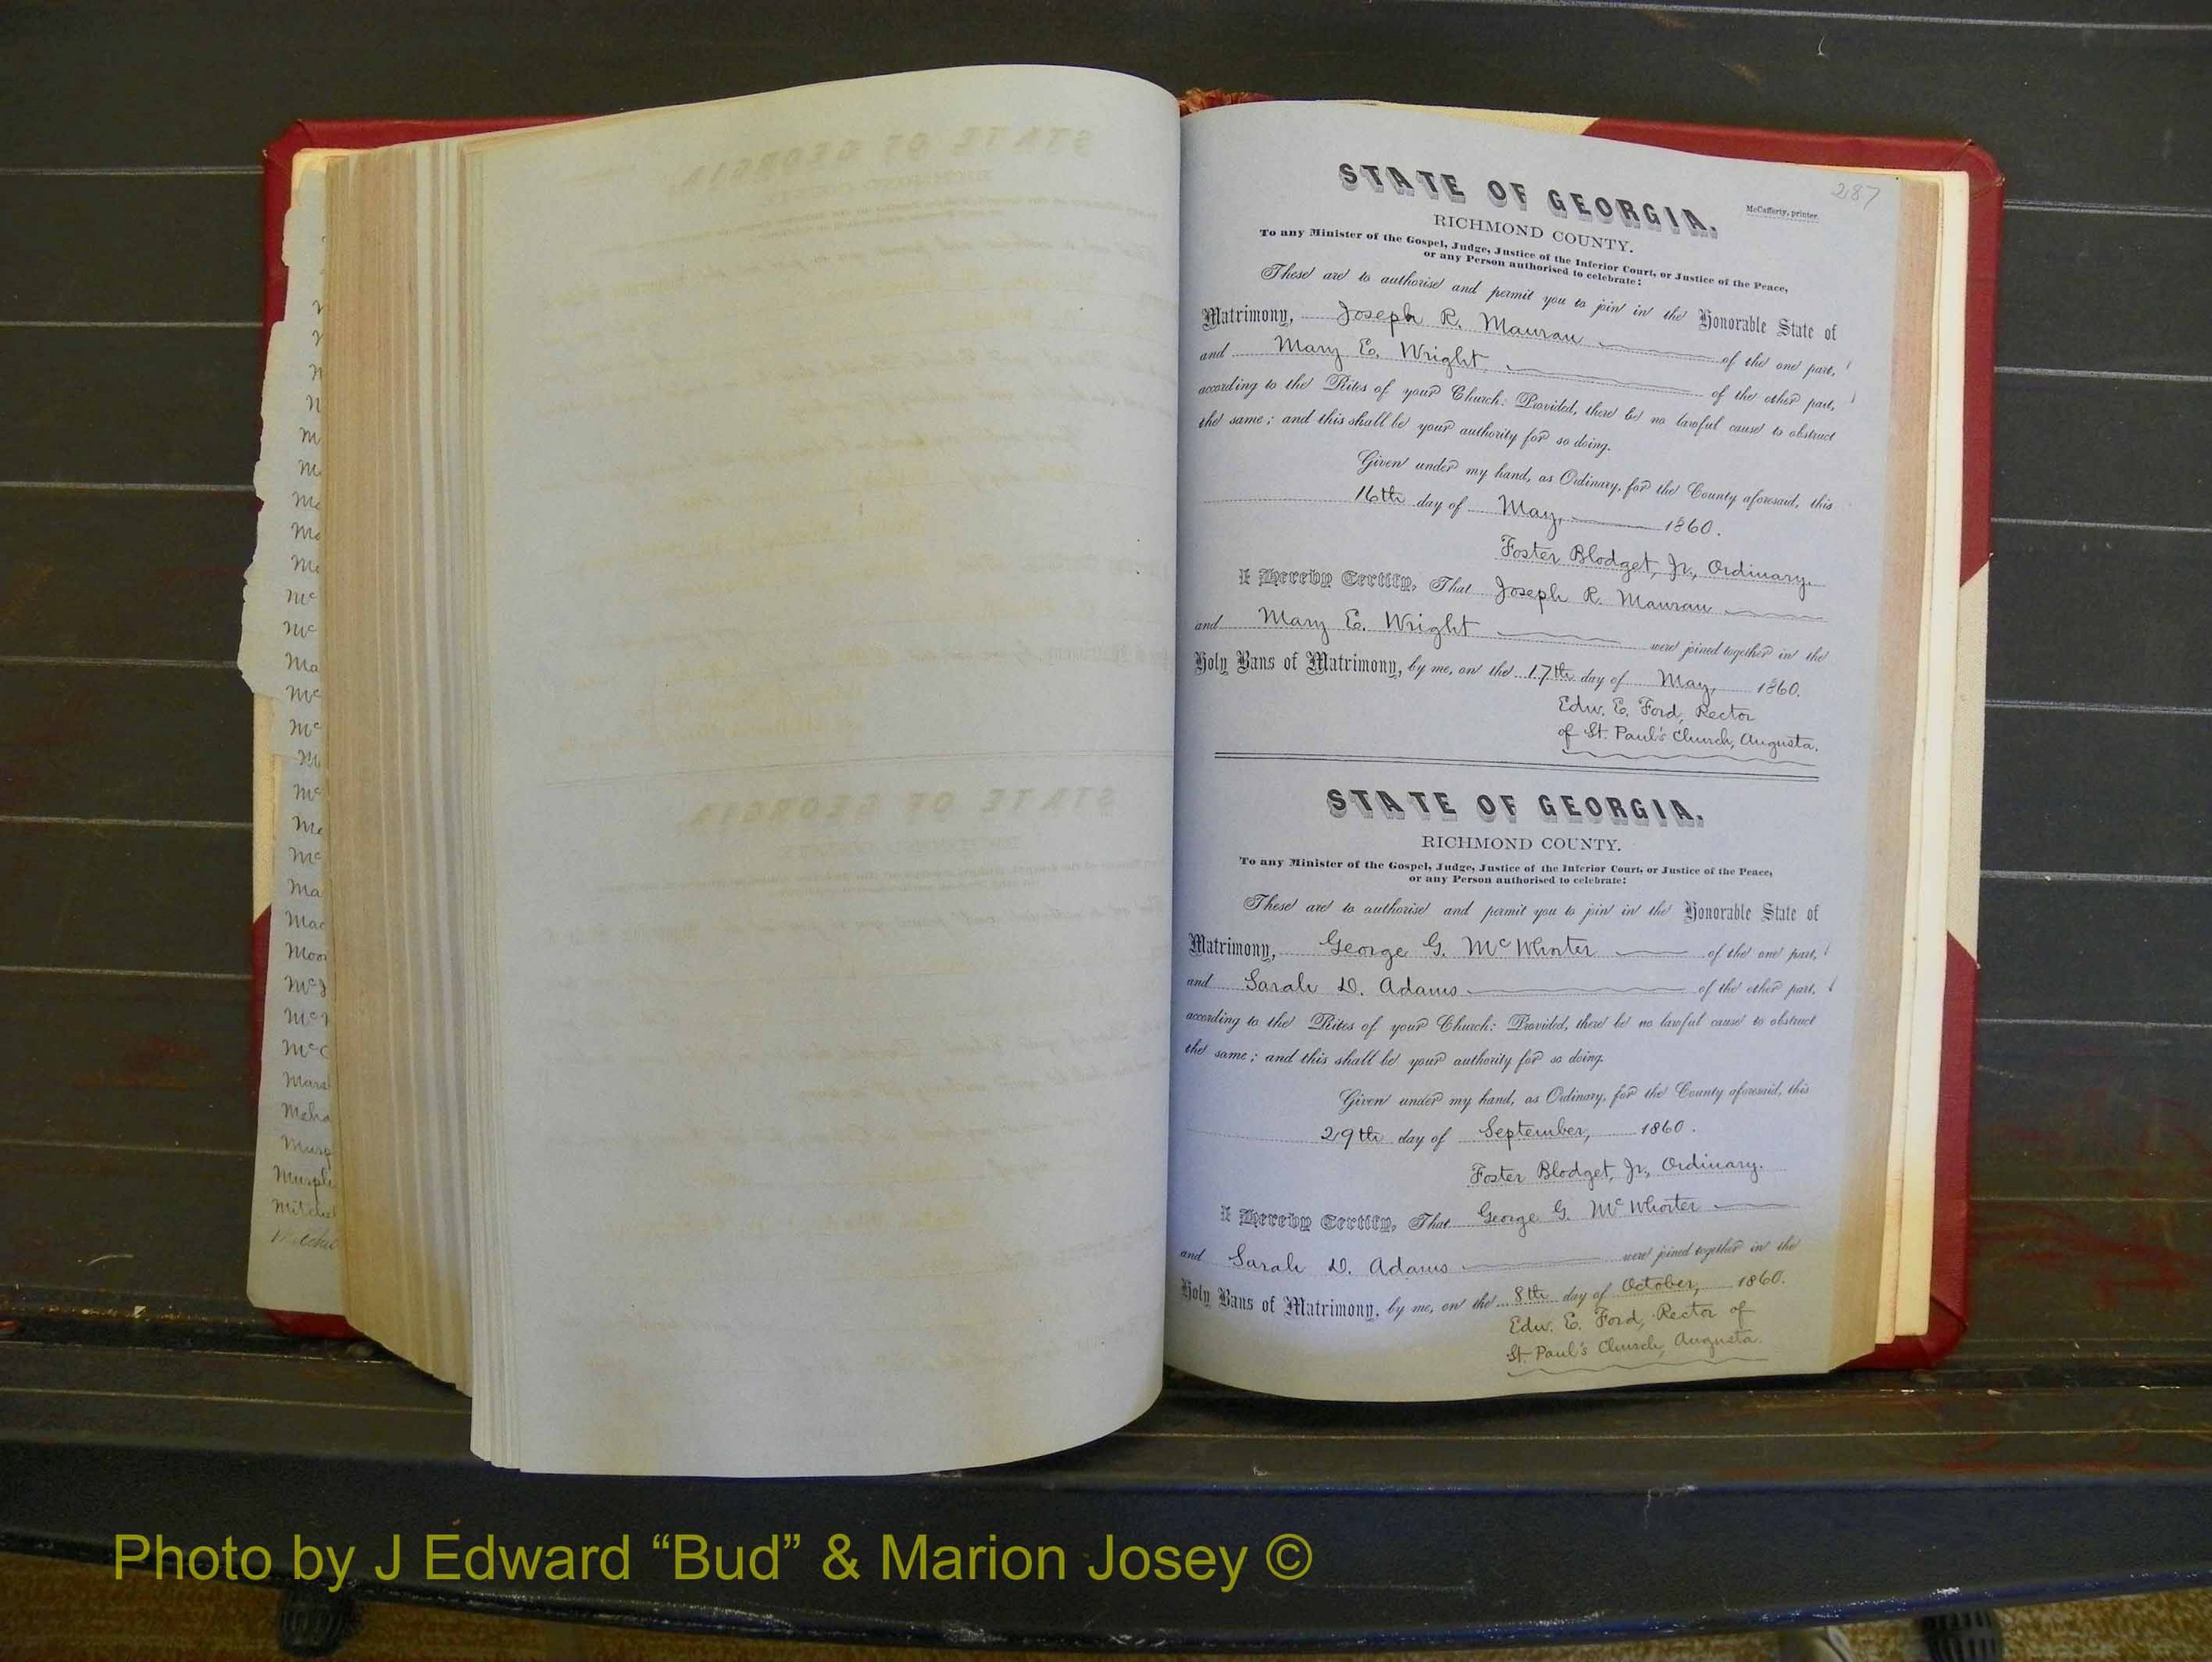 287
STATE OF GEORGIA.
McCafferty, printer.
RICHMOND COUNTY.
To any Minister of the Gospel, Judge, Justice of the Inferior Court, or Justice of the Peace,
or any Person authorised to celebrate:
These are to authorise and permit you to join in the Honorable State of
Matrimony, Joseph R. Mauran of the one part,
and Mary E. Wright of the other part,
according to the Rites of your Church: Provided, there be no lawful cause to obstruct
the same; and this shall be your authority for so doing.
Given under my hand, as Ordinary, for the County aforesaid, this
16th day of May, 1860.
Foster Blodget, Jr., Ordinary.
I Hereby Certify, That Joseph R. Mauran
and Mary E. Wright were joined together in the
Holy Bans of Matrimony, by me, on the 17th day of May, 1860.
Edw. E. Ford, Rector
of St. Paul's Church, Augusta.
STATE OF GEORGIA.
RICHMOND COUNTY.
To any Minister of the Gospel, Judge, Justice of the Inferior Court, or Justice of the Peace,
or any Person authorised to celebrate:
These are to authorise and permit you to join in the Honorable State of
Matrimony, George G. McWhorter of the one part,
and Sarah D. Adams of the other part,
according to the Rites of your Church: Provided, there be no lawful cause to obstruct
the same; and this shall be your authority for so doing.
Given under my hand, as Ordinary, for the County aforesaid, this
29th day of September, 1860.
Foster Blodget, Jr., Ordinary.
I Hereby Certify, That George G. McWhorter
and Sarah D. Adams were joined together in the
Holy Bans of Matrimony, by me, on the 8th day of October, 1860.
Edw. E. Ford, Rector of
St. Paul's Church, Augusta.
Photo by J Edward “Bud” & Marion Josey ©